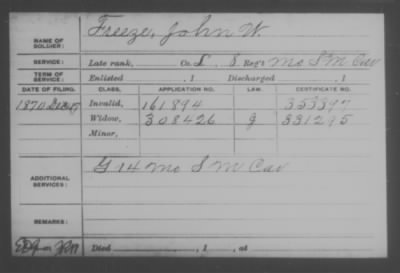 NAME OF SOLDIER: Freeze, John W.
SERVICE: Late rank, Co. L, 8 Reg't Mo S M Cav
TERM OF SERVICE: Enlisted , 1 Discharged , 1
DATE OF FILING. CLASS. APPLICATION NO. LAW. CERTIFICATE NO.
Invalid, 161894 353397
Widow, 308426 G 331295
Minor,
ADDITIONAL SERVICES: G 14 Mo S M Cav
REMARKS:
Died , 1 , at